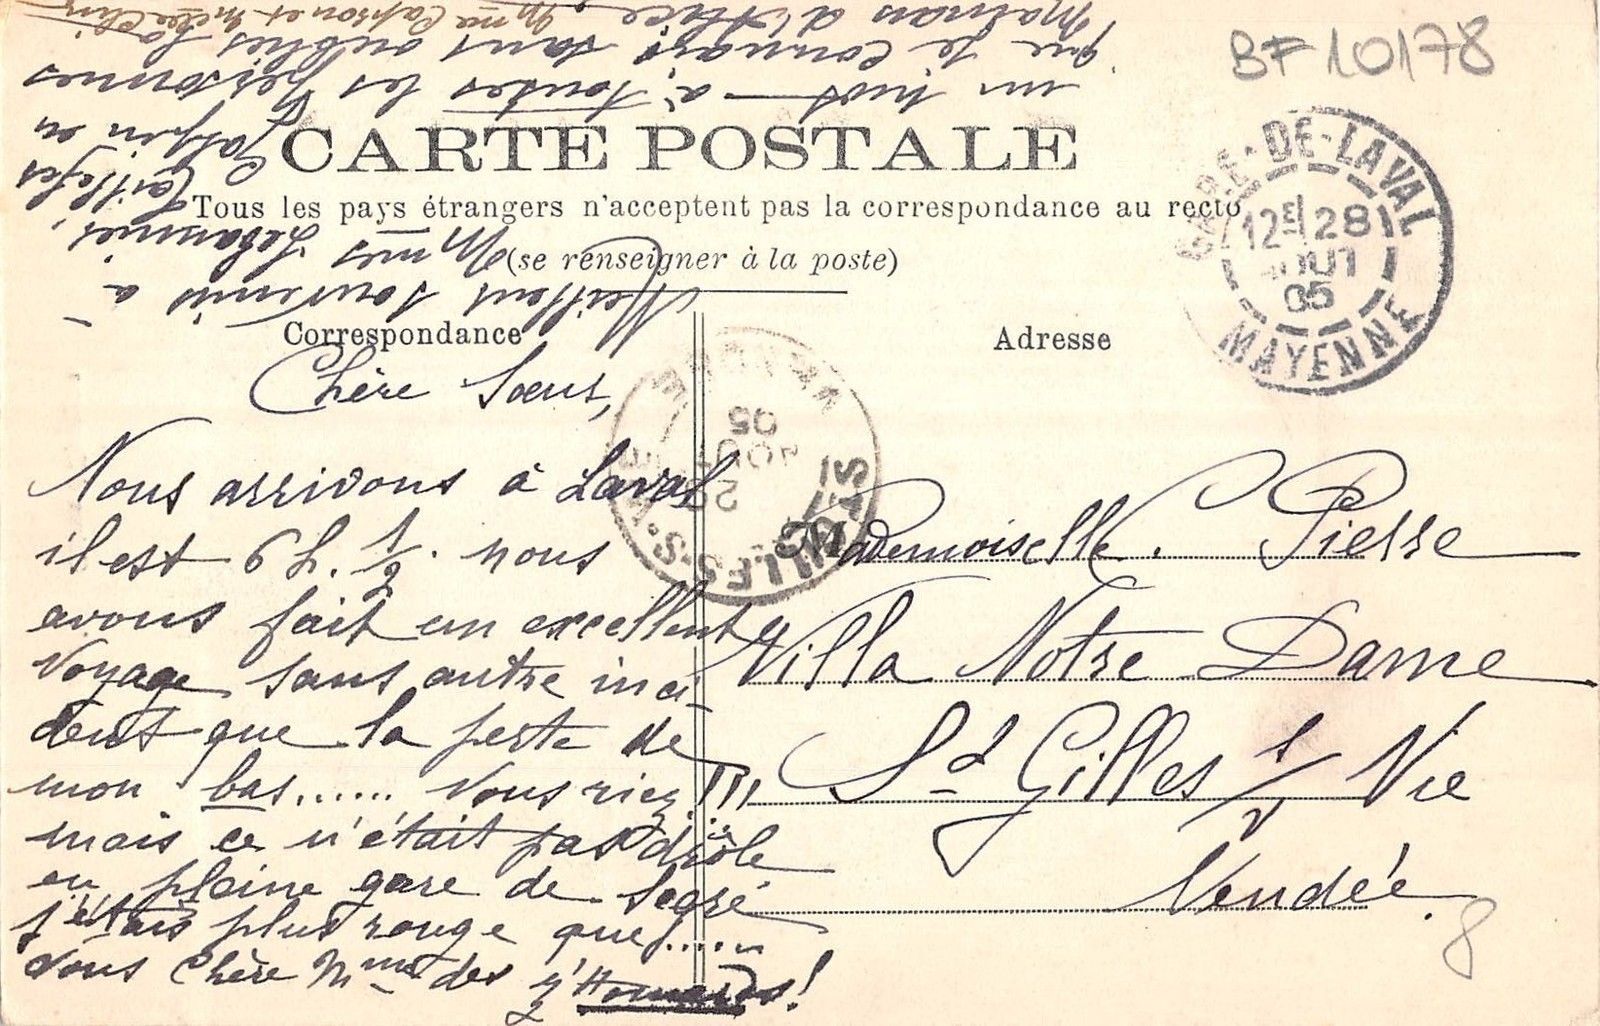 BF 10178
CARTE POSTALE
Tous les pays étrangers n'acceptent pas la correspondance au recto
(se renseigner à la poste)
Correspondance
Adresse
GARE-DE-LAVAL
12E 28
AOUT
05
MAYENNE
ST GILLES-S-VIE
29
AOUT
05
VENDEE
Chère Sœur,
Nous arrivons à Laval
il est 6 h. 1/2. nous
avons fait un excellent
voyage sans autre inci-
dent que la perte de
mon bas...... Vous riez!!!
mais ce n'était pas drôle
en pleine gare de Segré
j'étais plus rouge que.....
vous chère Mme des z'Homards!
Meilleur souvenir à
Mmes
Galpin en
un mot à toutes les personnes
que je connais sans oublier
Mademoiselle. Pierre
Villa Notre Dame
St Gilles s/ Vie
Vendée.
8